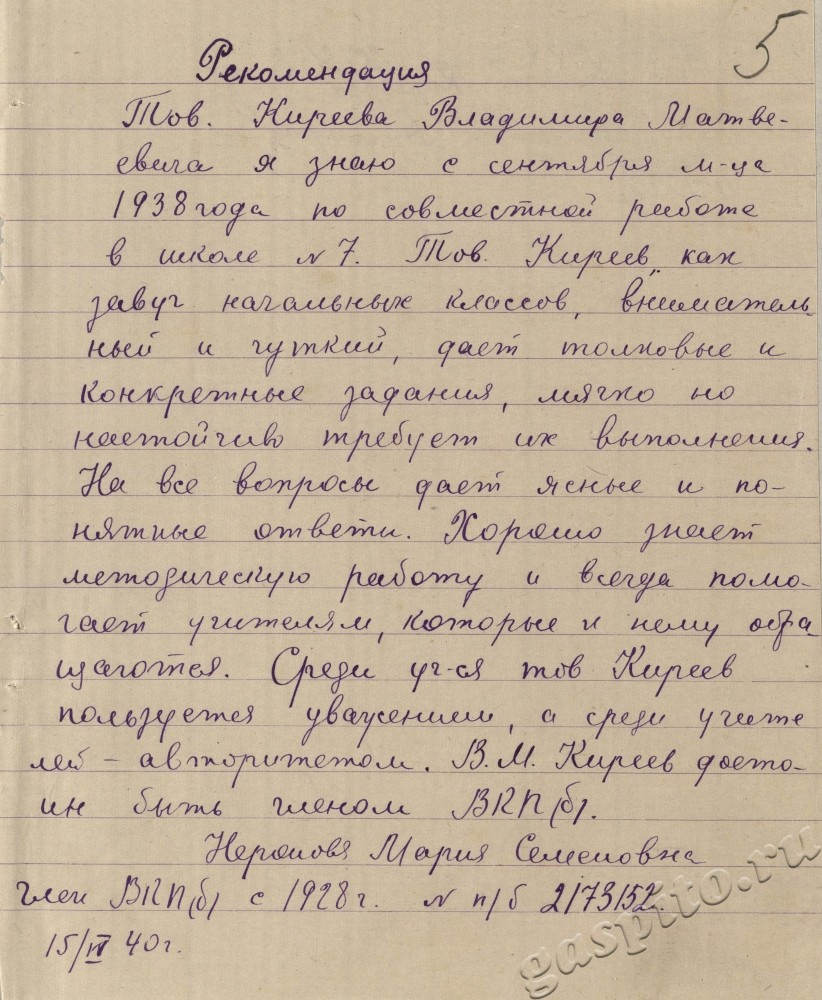 5
Рекомендация
Тов. Киреева Владимира Матве-
евича я знаю с сентября м-ца
1938 года по совместной работе
в школе №7. Тов. Киреев, как
завуч начальных классов, вниматель-
ный и чуткий, дает толковые и
конкретные задания, мягко но
настойчиво требует их выполнения.
На все вопросы дает ясные и по-
нятные ответы. Хорошо знает
методическую работу и всегда помо-
гает учителям, которые к нему обра
щаются. Среди уч-ся тов Киреев
пользуется уважением, а среди учите
лей - авторитетом. В.М. Киреев досто-
ин быть членом ВКП(б).
Мария Семеновна
Член ВКП(б) с 1928 г. № п/б 2173152.
15/IV 40 г.
gaspito.ru